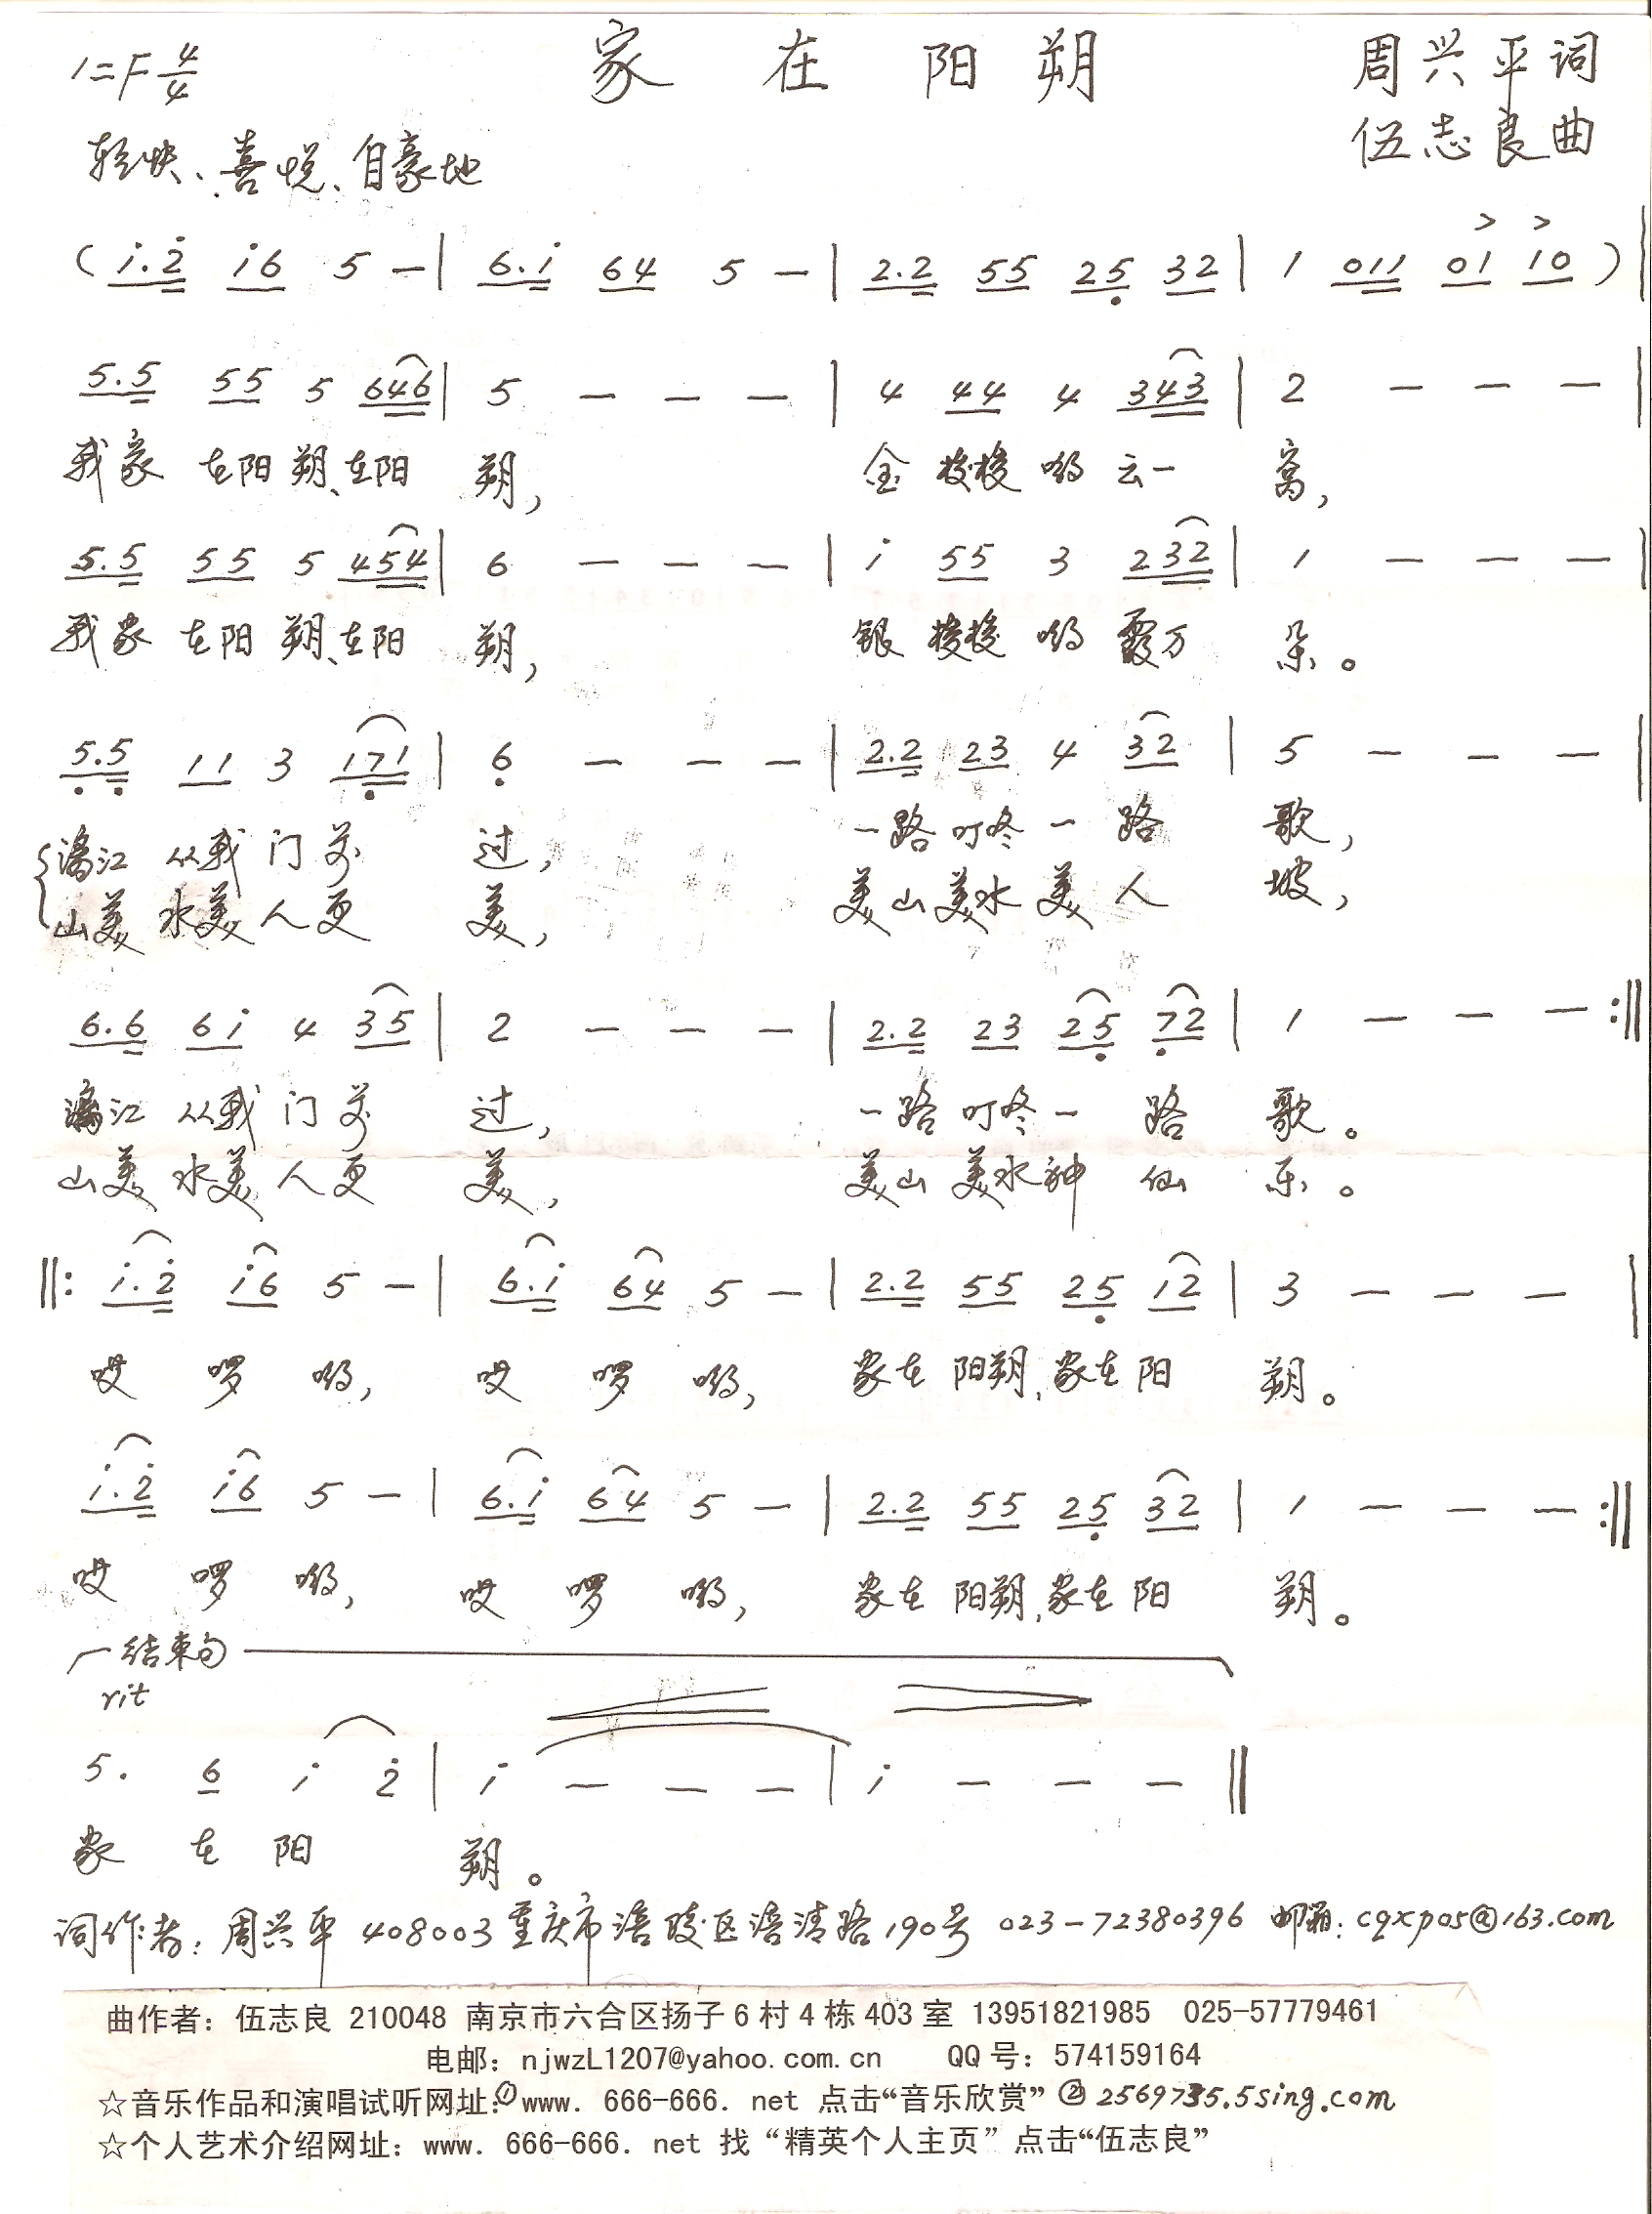 1=F 4/4 家在阳朔 周兴平词
轻快、喜悦、自豪地 伍志良曲
( i̇.2̇ i̇6 5 — | 6.i̇ 64 5 — | 2.2 55 25̣ 32 | 1 011 01 10 ) |
5.5 55 5 646 | 5 — — — | 4 44 4 343 | 2 — — — |
我家 在阳 朔、在阳 朔, 金梭梭哟云一窝,
5.5 55 5 454 | 6 — — — | i̇ 55 3 232 | 1 — — — |
我家 在阳 朔、在阳 朔, 银梭梭哟霞万朵。
5̣.5̣ 11 3 17̣1 | 6̣ — — — | 2.2 23 4 32 | 5 — — — |
漓江 从我 门前 过, 一路叮咚一路歌,
山美 水美 人更 美, 美山美水美人坡,
6.6 6i̇ 4 35 | 2 — — — | 2.2 23 25̣ 7̣2 | 1 — — — :||
漓江 从我 门前 过, 一路叮咚一路歌。
山美 水美 人更 美, 美山美水神仙乐。
||: i̇.2̇ i̇6 5 — | 6.i̇ 64 5 — | 2.2 55 25̣ 12 | 3 — — — |
哎啰哟, 哎啰哟, 家在阳朔,家在阳朔。
i̇.2̇ i̇6 5 — | 6.i̇ 64 5 — | 2.2 55 25̣ 32 | 1 — — — :||
哎啰哟, 哎啰哟, 家在阳朔,家在阳朔。
结束句
rit
5. 6 i̇ 2̇ | i̇ — — — | i̇ — — — ||
家在阳朔。
词作者:周兴平 408003 重庆市涪陵区涪清路190号 023-72380396 邮箱:cqxp05@163.com
曲作者:伍志良 210048 南京市六合区扬子6村4栋403室 13951821985 025-57779461
电邮:njwzL1207@yahoo.com.cn QQ号:574159164
☆音乐作品和演唱试听网址:①www. 666-666. net 点击“音乐欣赏” ②2569735.5sing.com
☆个人艺术介绍网址:www. 666-666. net 找“精英个人主页”点击“伍志良”